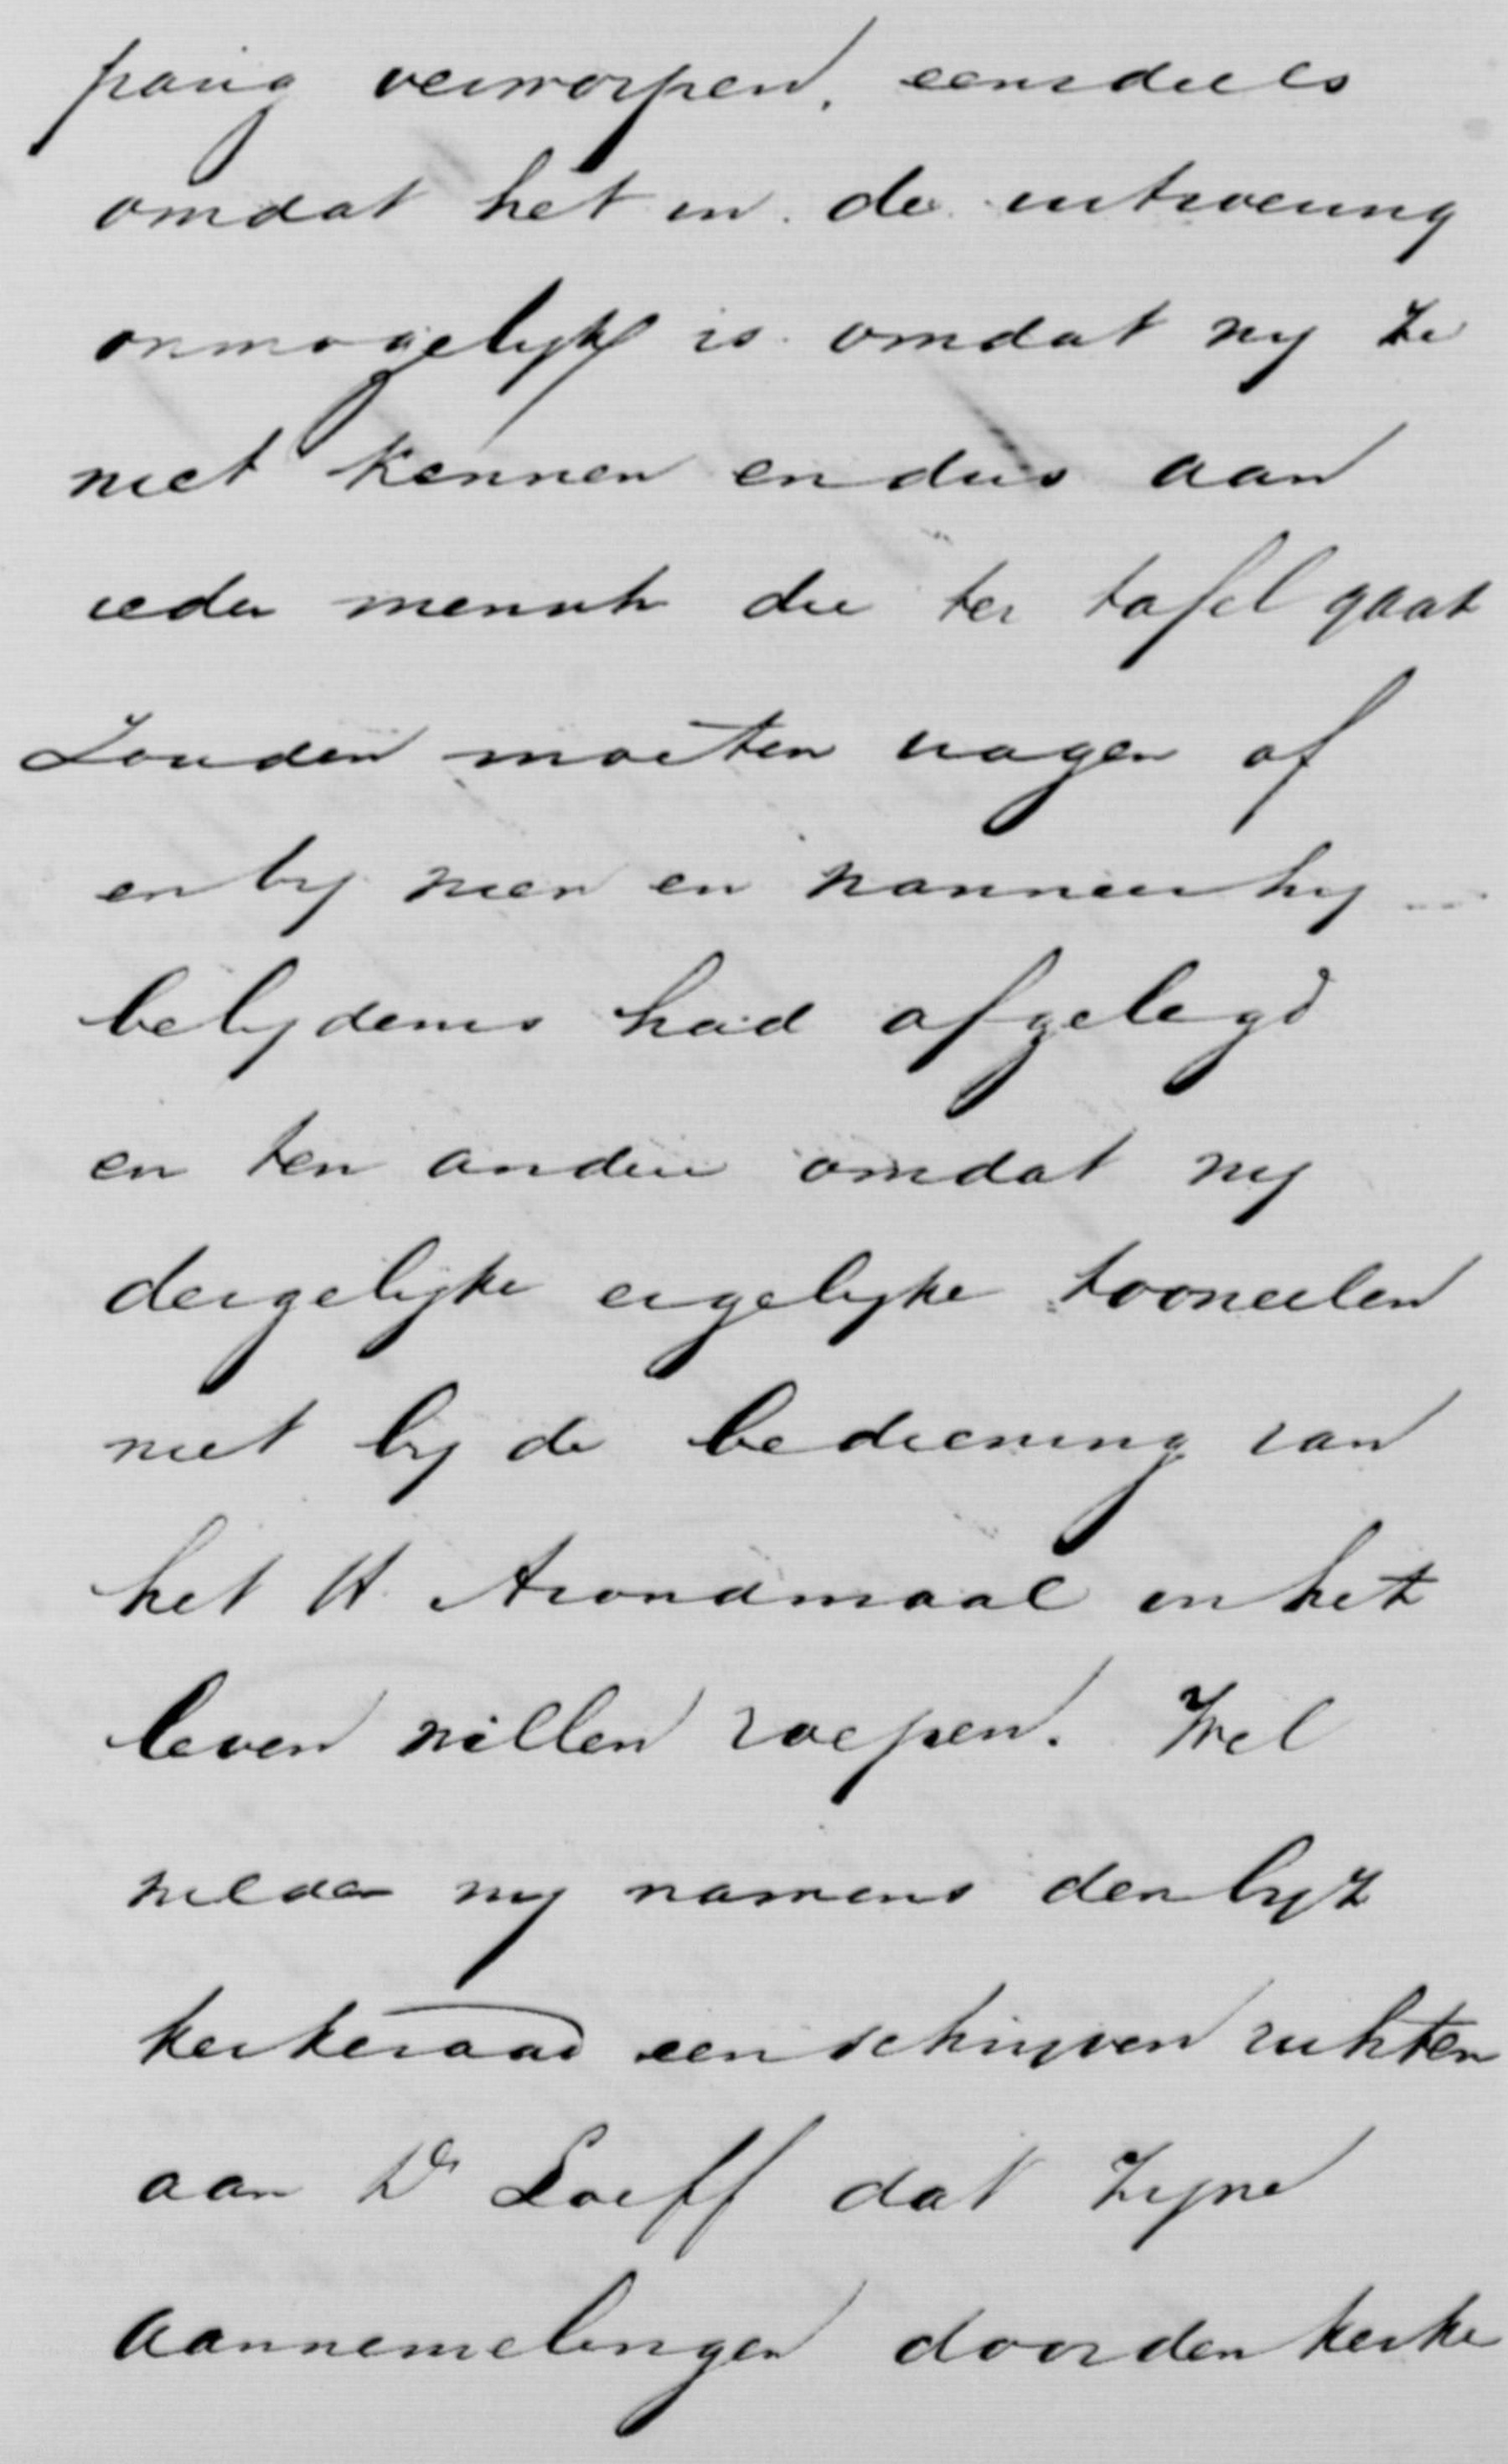 parig verworpen, eensdeels
omdat het in de uitvoering
onmogelijk is omdat wij ze
niet kennen en dus aan
ieder mensch die ter tafel gaat
Zouden moeten vragen of
en bij wien en wanneer hij
belijdenis had afgelegd
en ten andere omdat wij
dergelijke ergelijke tooneelen
niet bij de bediening van
het H. Avondmaal in het
leven willen roepen. Wel
wilden wij namens den byz
kerkeraad een schrijven richten
aan Ds Loeff dat zijne
aannemelingen door den kerke